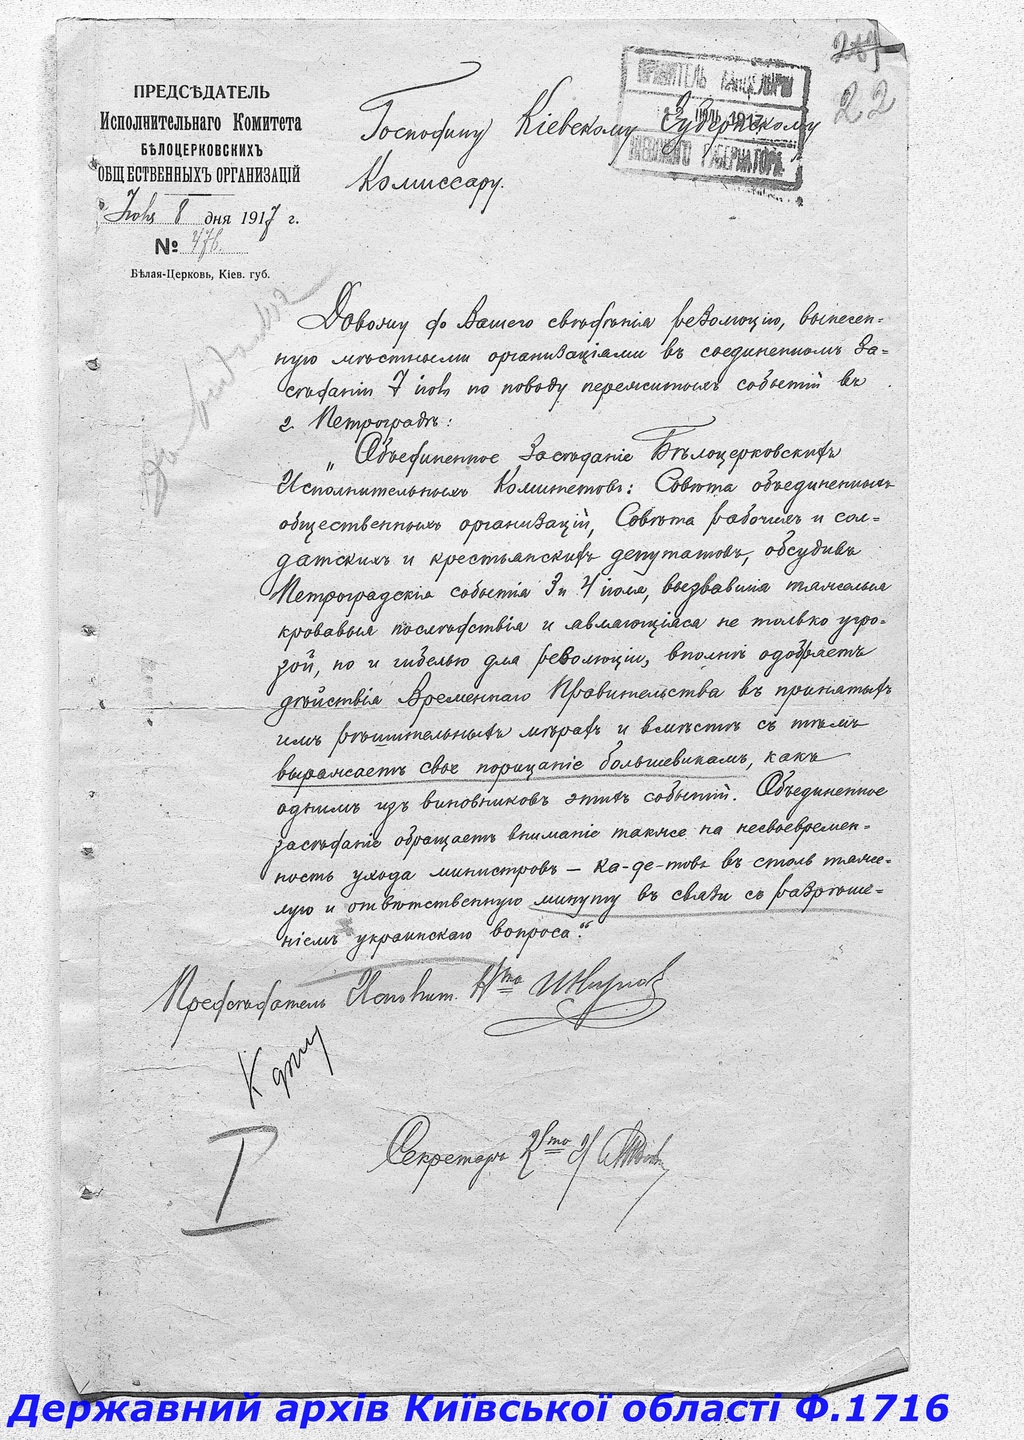 22
ПРЕДСѢДАТЕЛЬ
Исполнительнаго Комитета
БѢЛОЦЕРКОВСКИХЪ
ОБЩЕСТВЕННЫХЪ ОРГАНИЗАЦІЙ
Іюля 8 дня 1917 г.
№ 476.
Бѣлая-Церковь, Кіев. губ.
ПРАВИТЕЛЬ КАНЦЕЛЯРІИ
1917
КІЕВСКАГО ГУБЕРНАТОРА
Господину Кіевскому Губернскому
Комиссару.
Довожу до Вашего свѣдѣнія резолюцію, вынесен-
ную мѣстными организаціями въ соединенномъ За-
сѣданіи 7 іюля по поводу пережитыхъ событій въ
г. Петроградѣ:
„Объединенное Засѣданіе Бѣлоцерковскихъ
Исполнительныхъ Комитетовъ: Совѣта объединенныхъ
общественныхъ организацій, Совѣта рабочихъ и сол-
датскихъ и крестьянскихъ депутатовъ, обсудивъ
Петроградскія событія 3 и 4 іюля, вызвавшія тяжелыя
кровавыя послѣдствія и являющіяся не только угро-
зой, но и гибелью для революціи, вполнѣ одобряетъ
дѣйствія Временнаго Правительства въ принятыхъ
имъ рѣшительныхъ мѣрахъ и вмѣстѣ съ тѣмъ
выражаетъ свое порицаніе большевикамъ, какъ
однимъ изъ виновниковъ этихъ событій. Объединенное
засѣданіе обращаетъ вниманіе также на несвоевремен-
ность ухода министровъ – ка-де-товъ въ столь тяже-
лую и отвѣтственную минуту въ связи съ разрѣше-
ніемъ украинскаго вопроса."
Предсѣдатель Исполнит. К-та
К дѣлу
I
Секретарь
Державний архів Київської області Ф.1716